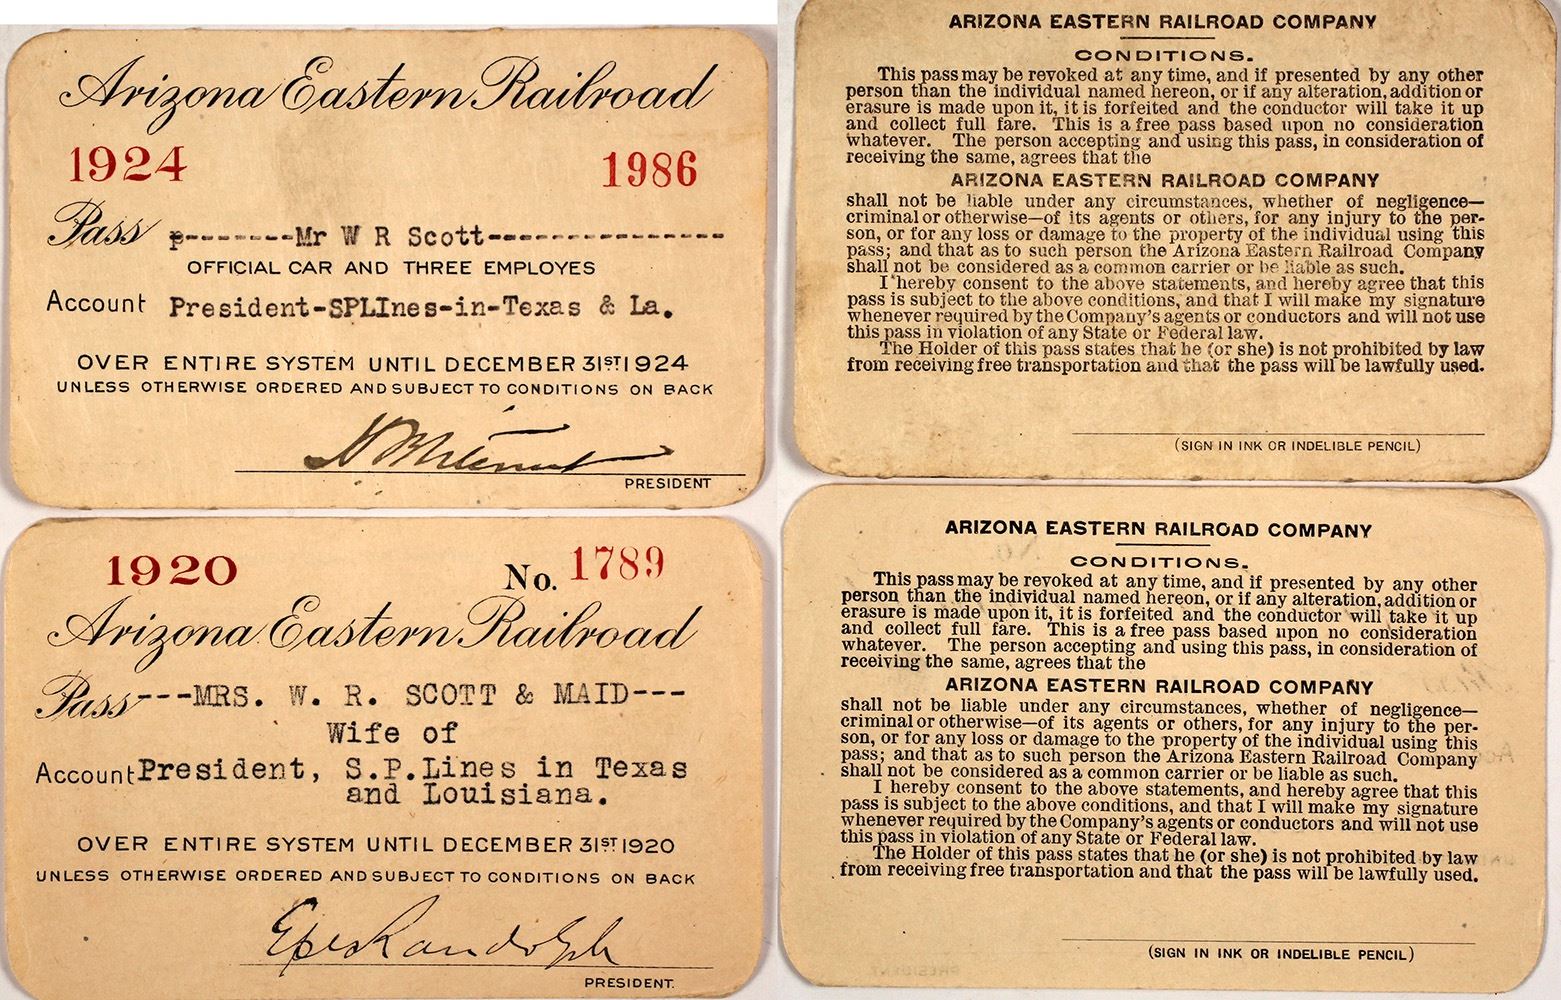 Arizona Eastern Railroad
1924 1986
Pass p-------Mr W R Scott---------------
OFFICIAL CAR AND THREE EMPLOYES
Account President-SPLInes-in-Texas & La.
OVER ENTIRE SYSTEM UNTIL DECEMBER 31ST 1924
UNLESS OTHERWISE ORDERED AND SUBJECT TO CONDITIONS ON BACK
PRESIDENT
ARIZONA EASTERN RAILROAD COMPANY
CONDITIONS.
This pass may be revoked at any time, and if presented by any other
person than the individual named hereon, or if any alteration, addition or
erasure is made upon it, it is forfeited and the conductor will take it up
and collect full fare. This is a free pass based upon no consideration
whatever. The person accepting and using this pass, in consideration of
receiving the same, agrees that the
ARIZONA EASTERN RAILROAD COMPANY
shall not be liable under any circumstances, whether of negligence—
criminal or otherwise—of its agents or others, for any injury to the per-
son, or for any loss or damage to the property of the individual using this
pass; and that as to such person the Arizona Eastern Railroad Company
shall not be considered as a common carrier or be liable as such.
I hereby consent to the above statements, and hereby agree that this
pass is subject to the above conditions, and that I will make my signature
whenever required by the Company's agents or conductors and will not use
this pass in violation of any State or Federal law.
The Holder of this pass states that he (or she) is not prohibited by law
from receiving free transportation and that the pass will be lawfully used.
(SIGN IN INK OR INDELIBLE PENCIL)
1920 No. 1789
Arizona Eastern Railroad
Pass---MRS. W. R. SCOTT & MAID---
Wife of
Account President, S.P.Lines in Texas
and Louisiana.
OVER ENTIRE SYSTEM UNTIL DECEMBER 31ST 1920
UNLESS OTHERWISE ORDERED AND SUBJECT TO CONDITIONS ON BACK
Epes Randolph
PRESIDENT.
ARIZONA EASTERN RAILROAD COMPANY
CONDITIONS.
This pass may be revoked at any time, and if presented by any other
person than the individual named hereon, or if any alteration, addition or
erasure is made upon it, it is forfeited and the conductor will take it up
and collect full fare. This is a free pass based upon no consideration
whatever. The person accepting and using this pass, in consideration of
receiving the same, agrees that the
ARIZONA EASTERN RAILROAD COMPANY
shall not be liable under any circumstances, whether of negligence—
criminal or otherwise—of its agents or others, for any injury to the per-
son, or for any loss or damage to the property of the individual using this
pass; and that as to such person the Arizona Eastern Railroad Company
shall not be considered as a common carrier or be liable as such.
I hereby consent to the above statements, and hereby agree that this
pass is subject to the above conditions, and that I will make my signature
whenever required by the Company's agents or conductors and will not use
this pass in violation of any State or Federal law.
The Holder of this pass states that he (or she) is not prohibited by law
from receiving free transportation and that the pass will be lawfully used.
(SIGN IN INK OR INDELIBLE PENCIL)